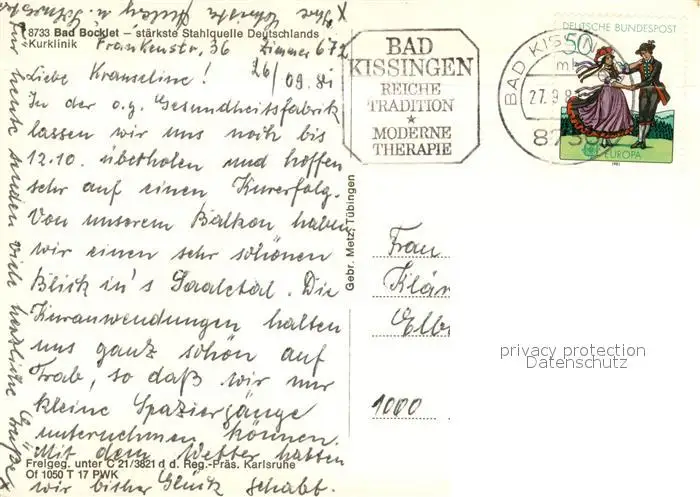 8733 Bad Bocklet – stärkste Stahlquelle Deutschlands
Kurklinik
Frankenstr. 36 Zimmer 672
26/09.81
Liebe Kranseline!
In der o.g. Gesundheitsfabrik
lassen wir uns noch bis
12.10. überholen und hoffen
sehr auf einen Kurerfolg.
Von unserem Balkon haben
wir einen sehr schönen
Blick in's Saaletal. Die
Kuranwendungen halten
uns ganz schön auf
Trab, so daß wir nur
kleine Spaziergänge
unternehmen können.
Mit dem Wetter hatten
wir bisher Glück gehabt.
Für heute senden viele herzliche Grüße
Freigeg. unter C 21/3821 d d. Reg.-Präs. Karlsruhe
Of 1050 T 17 PWK
Gebr. Metz, Tübingen
BAD
KISSINGEN
REICHE
TRADITION
★
MODERNE
THERAPIE
BAD KISSIN
mb
27.9.8
873
DEUTSCHE BUNDESPOST
50
EUROPA
1981
Frau
Klär
Elb
1000
privacy protection
Datenschutz